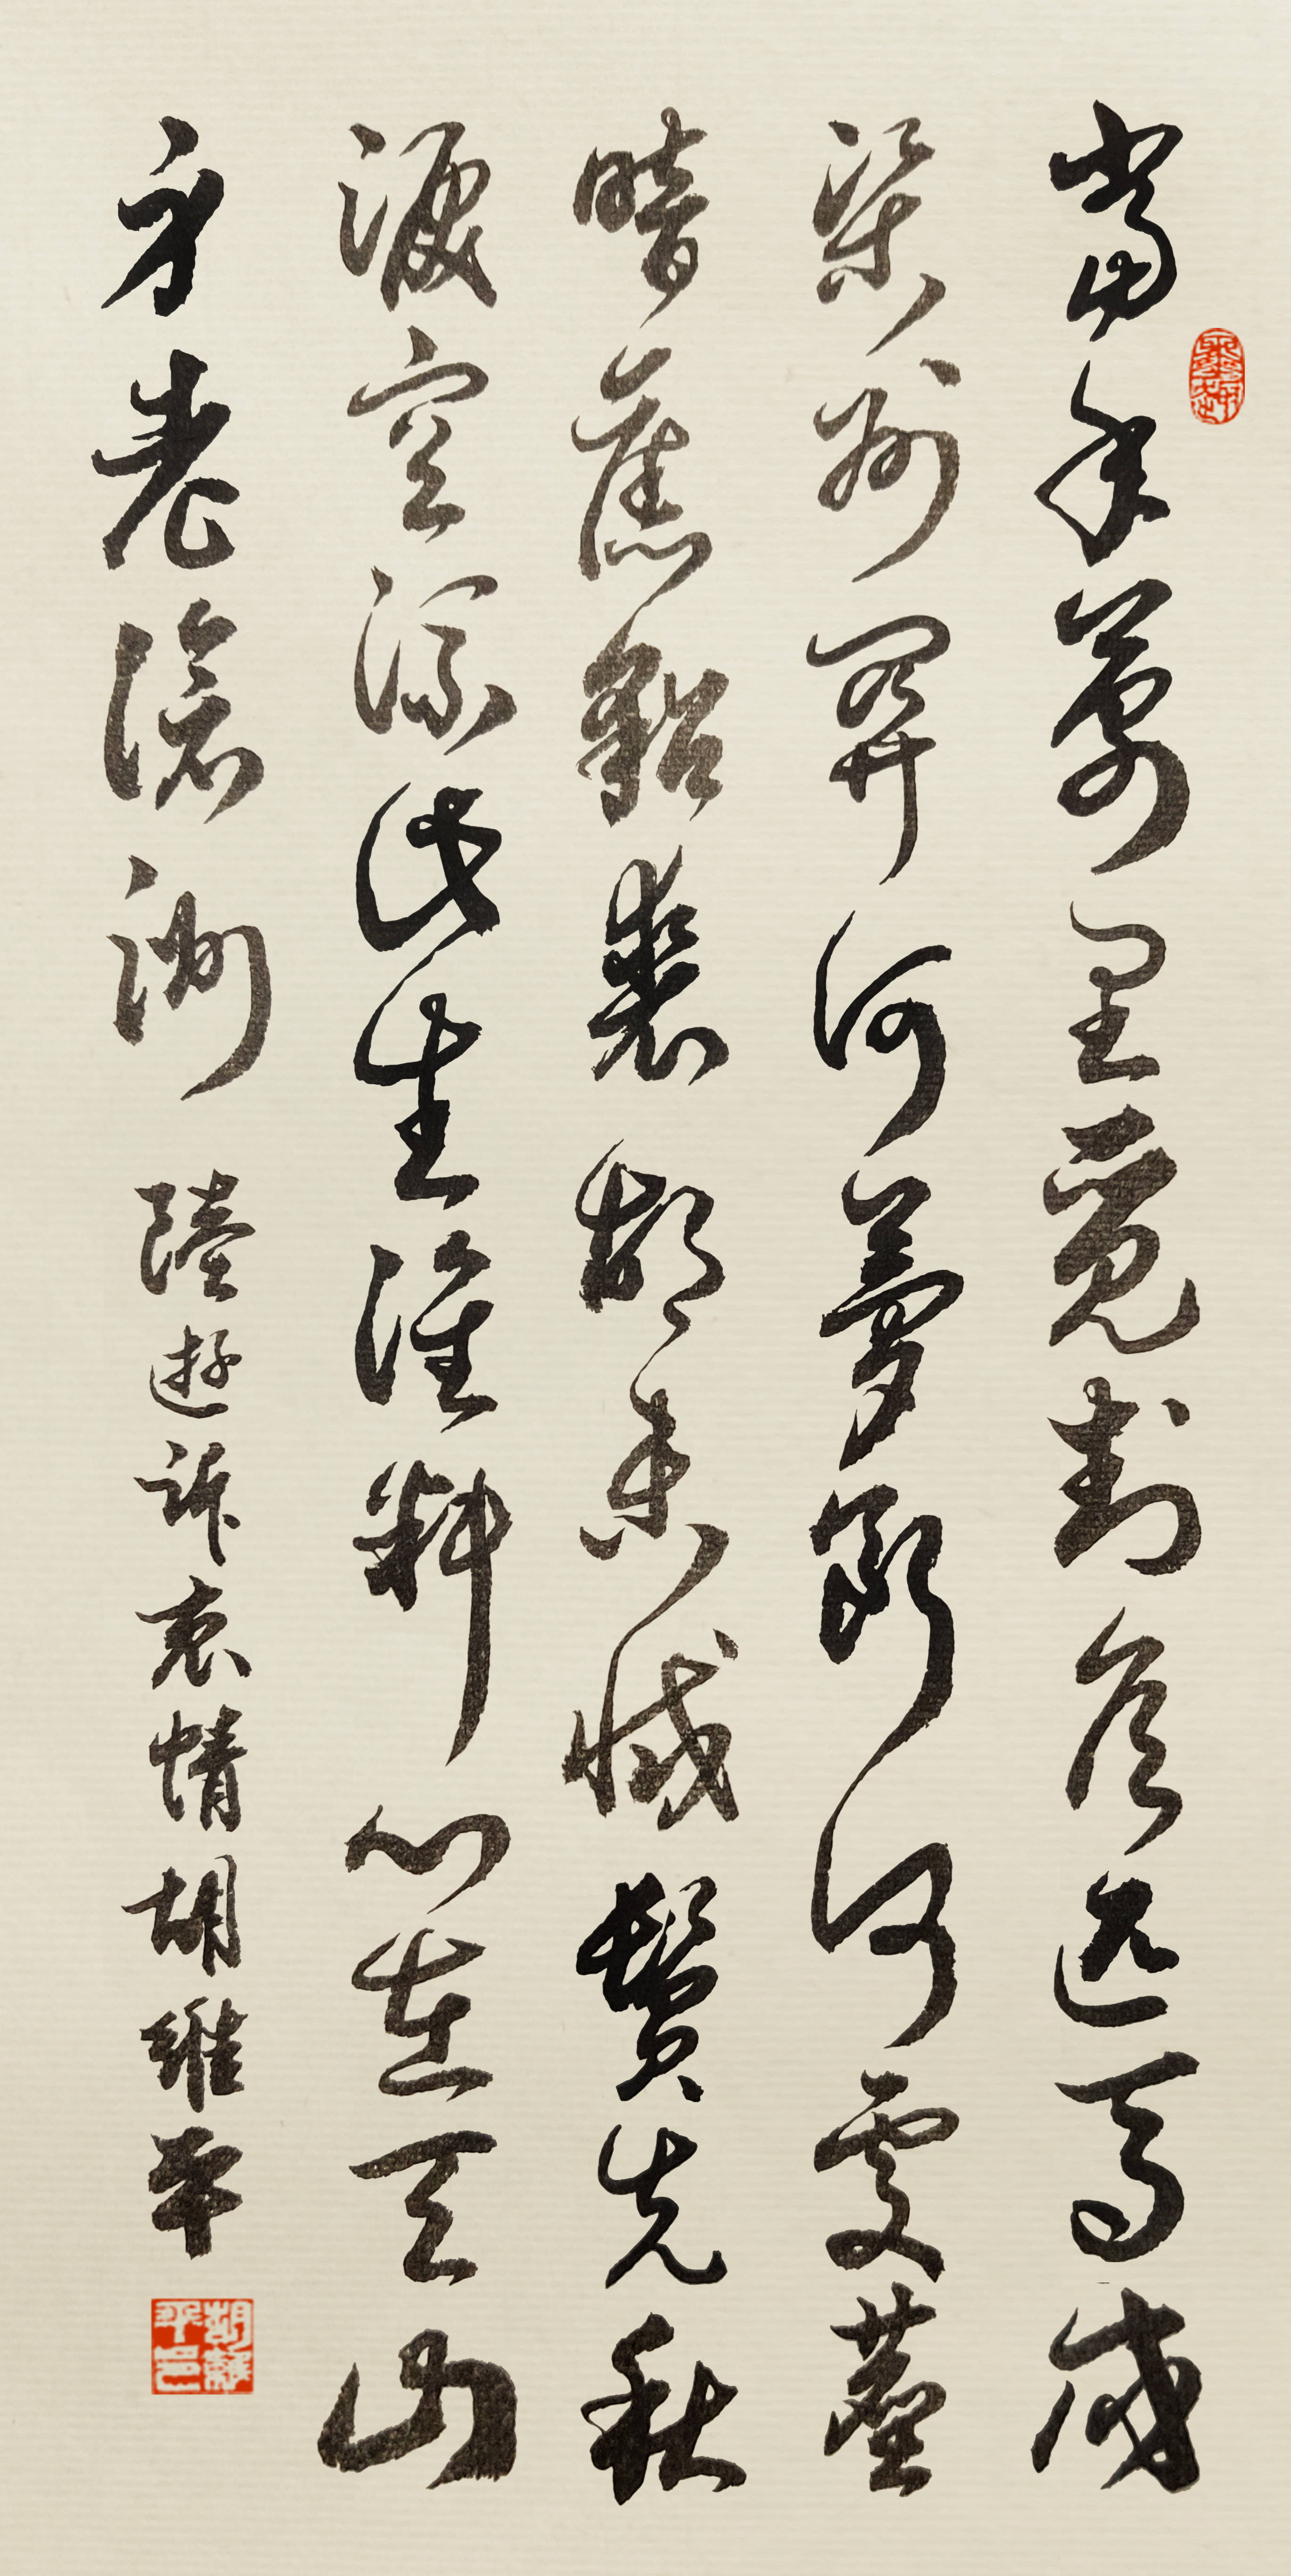 當年萬里覓封侯匹馬戍
梁州關河夢斷何處塵
暗舊貂裘胡未滅鬢先秋
淚空流此生誰料心在天山
身老滄洲 陸遊訴衷情胡維平
胡維平印